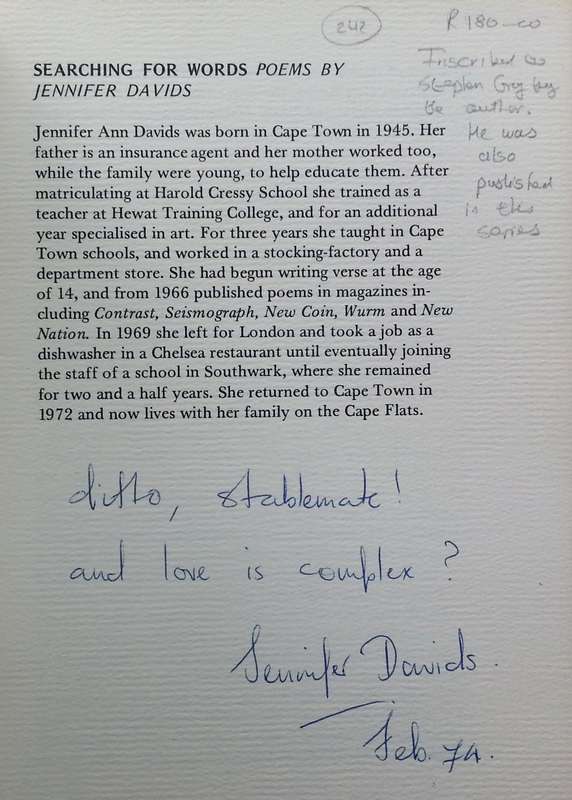 242
R 180-00
Inscribed to
Stephen Gray by
the author.
He was
also
published
in this
series
SEARCHING FOR WORDS POEMS BY
JENNIFER DAVIDS
Jennifer Ann Davids was born in Cape Town in 1945. Her
father is an insurance agent and her mother worked too,
while the family were young, to help educate them. After
matriculating at Harold Cressy School she trained as a
teacher at Hewat Training College, and for an additional
year specialised in art. For three years she taught in Cape
Town schools, and worked in a stocking-factory and a
department store. She had begun writing verse at the age
of 14, and from 1966 published poems in magazines in-
cluding Contrast, Seismograph, New Coin, Wurm and New
Nation. In 1969 she left for London and took a job as a
dishwasher in a Chelsea restaurant until eventually joining
the staff of a school in Southwark, where she remained
for two and a half years. She returned to Cape Town in
1972 and now lives with her family on the Cape Flats.
ditto, stablemate!
and love is complex?
Jennifer Davids.
Feb. 74.